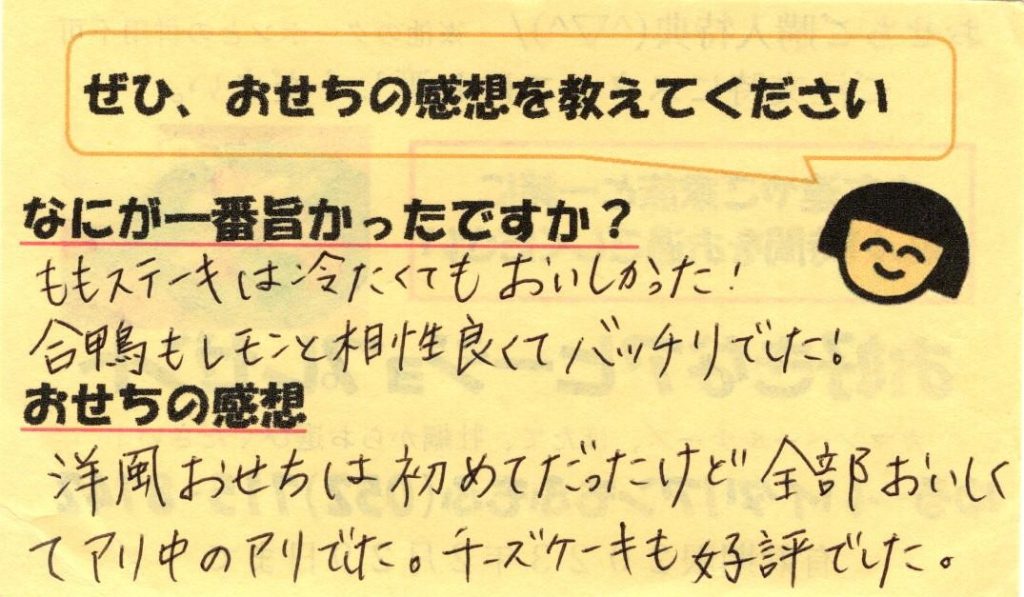 ぜひ、おせちの感想を教えてください
なにが一番旨かったですか？
ももステーキは冷たくてもおいしかった！
合鴨もレモンと相性良くてバッチリでした！
おせちの感想
洋風おせちは初めてだったけど全部おいしく
てアリ中のアリでした。チーズケーキも好評でした。